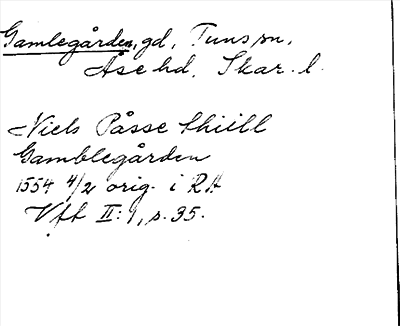 Gamlegården, gd, Tuns sn,
Åse hd, Skar. l.
Niels Påsse thiill
Gamblegården
1554 4/2 orig. i RA
Vff II:1, s. 35.